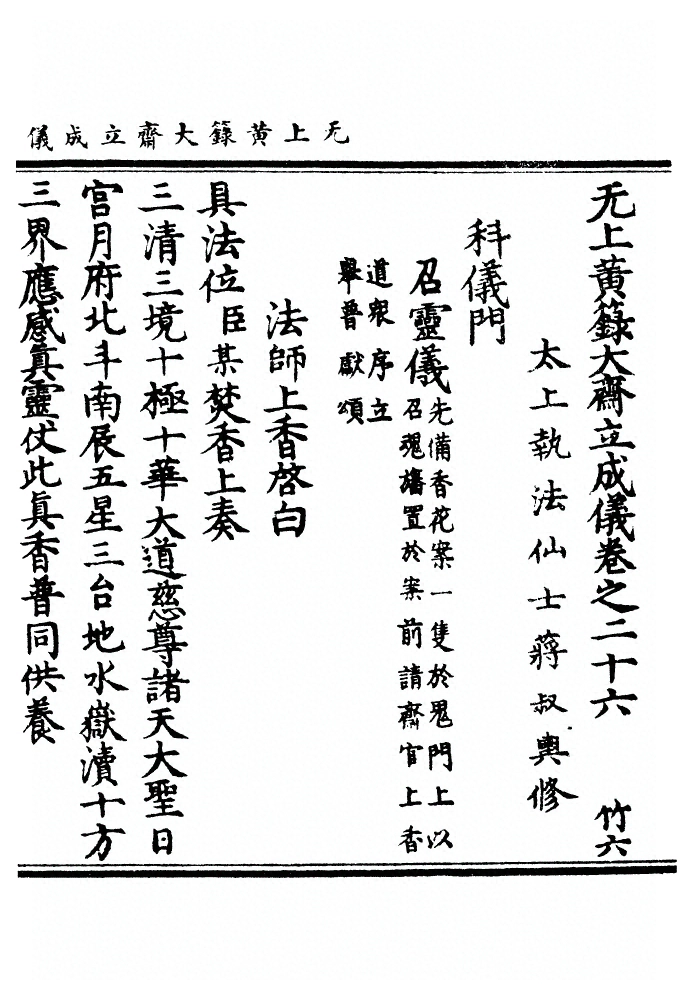 无上黃籙大齋立成儀
无上黃籙大齋立成儀卷之二十六 竹六
太上執法仙士蔣叔輿修
科儀門
召靈儀先備香花案一隻於鬼門上以
召魂旛置於案前請齋官上香
道衆序立
舉普獻頌
法師上香啓白
具法位臣某焚香上奏
三清三境十極十華大道慈尊諸天大聖日
宮月府北斗南辰五星三台地水嶽瀆十方
三界應感眞靈仗此眞香普同供養